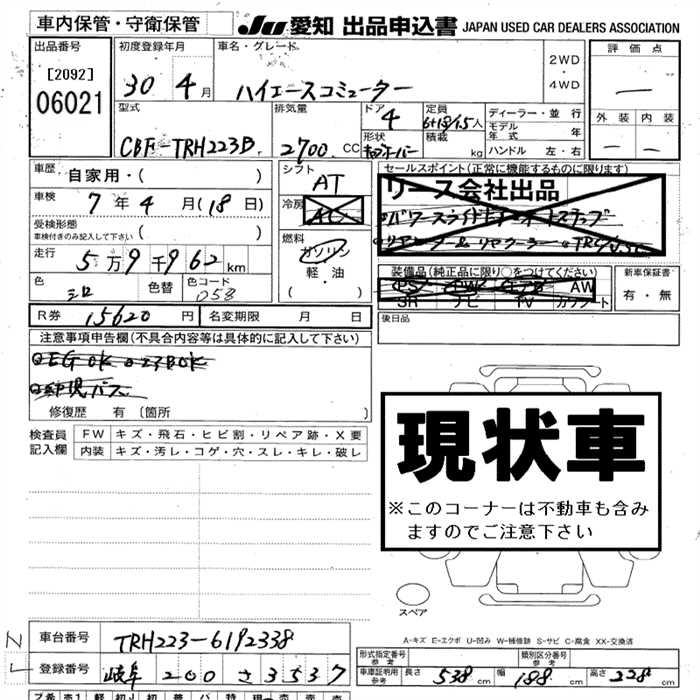 車内保管・守衛保管 JU 愛知 出品申込書 JAPAN USED CAR DEALERS ASSOCIATION
出品番号 初度登録年月 車名・グレード 2WD・4WD 評価点
[2092] 06021 30 4月 ハイエースコミューター
型式 排気量 ドア 4 定員 人 ディーラー・並行 外装 内装
CBF-TRH223B 2700 CC 形状 積載 kg モデル年式 年 ハンドル 左・右
車歴 自家用・( ) シフト AT セールスポイント(正常に機能するものに限ります)
車検 7年4月(18日) 冷房 AC リース会社出品
受検形態 車検付きのみ記入して下さい ( )
走行 5万9千962km 燃料 ガソリン・軽油・( )
装備品(純品に限り○をつけてください) 新車保証書
PS PW エアB AW 有・無
SR ナビ TV カワシート
色 シロ 色替 色コード 058
後日品
R券 15620円 名変期限 月 日
注意事項申告欄(不具合内容等は具体的に記入して下さい)
修復歴 有 〔箇所 〕
現状車
※このコーナーは不動車も含みますのでご注意下さい
検査員記入欄 FW キズ・飛石・ヒビ割・リペア跡・X要
内装 キズ・汚レ・コゲ・穴・スレ・キレ・破レ
スペア
A-キズ E-エクボ U-凹み W-補修跡 S-サビ C-腐食 XX-交換済
車台番号 TRH223-6192338
登録番号 岐阜 200 さ 3537
形式指定番号 参考 類別区分番号 参考
車庫証明用 参考 長さ 538cm 幅 188cm 高さ 228cm